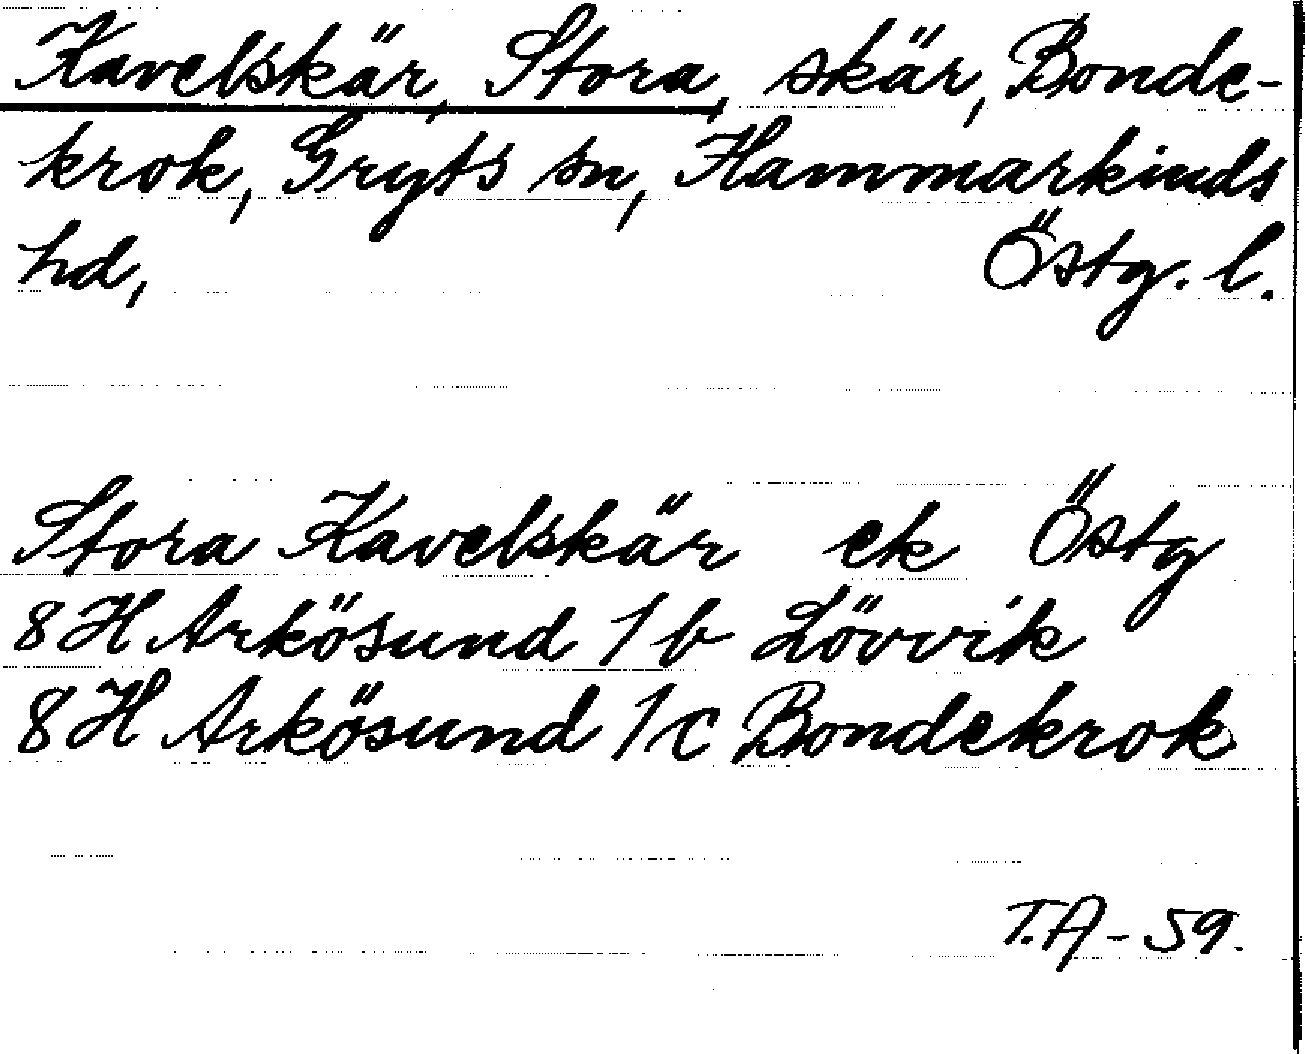 Kavelskär, Stora, skär, Bonde-
krok, Gryts sn, Hammarkinds
hd, Östg. l.
Stora Kavelskär ek Östg
8 H Arkösund 1 b Lövvik
8 H Arkösund 1 c Bondekrok
T.A - 59.